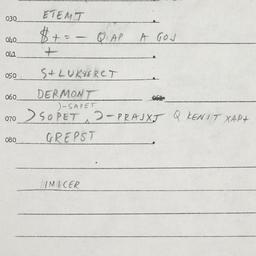 030 ETEMT
040 $ + = - Q AP A GOJ
041 +
050 S+LUKVERCT
060 DERMONT
)-SAPET
070 )SOPET ^ )-PRAJXJ Q KENIT XAP+
080 GREPST
INICER